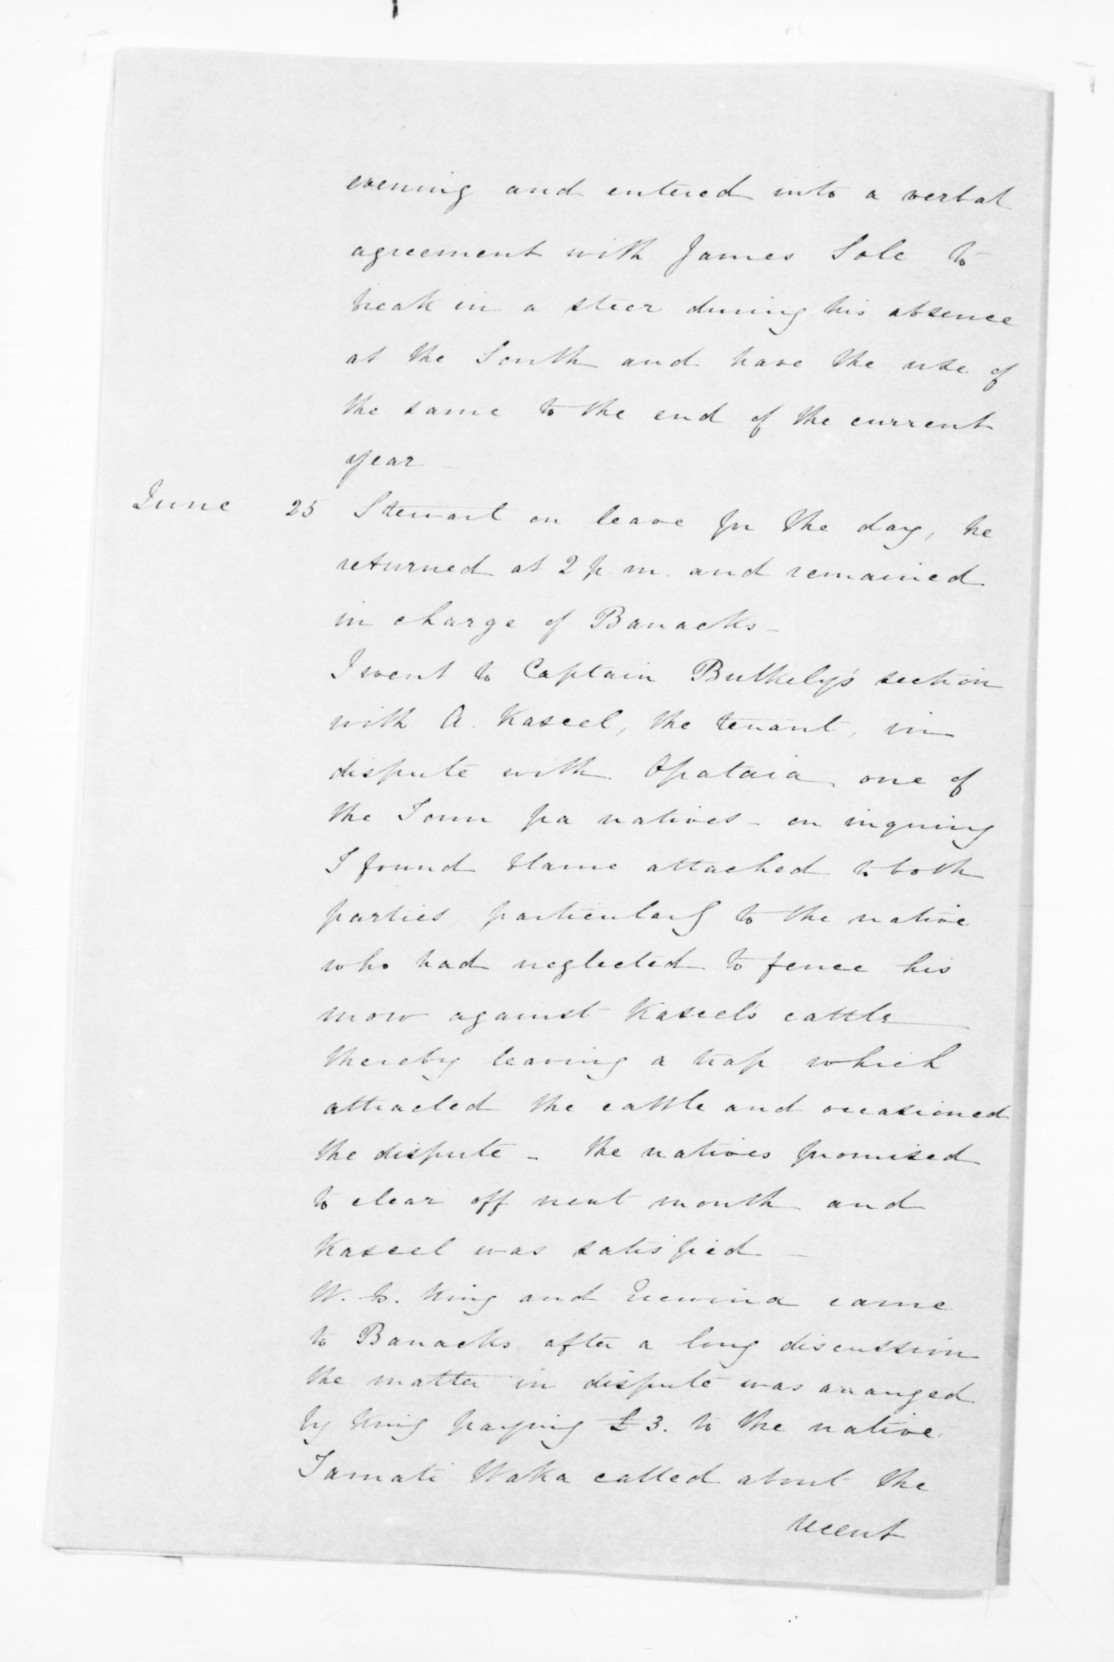 evening and entered into a verbal
agreement with James Sole to
break in a steer during his absence
at the South and have the use of
the same to the end of the current
year
June 25 Stewart on leave for the day, he
returned at 2 p.m. and remained
in charge of Banacks -
I went to Captain Bulkely's section
with A. Kaseel, the tenant, in
dispute with Apataia one of
the Town pa natives - on inquiring
I found blame attached to both
parties, particularly to the native
who had neglected to fence his
mow against Kaseel's cattle
thereby leaving a trap which
attracted the cattle and occasioned
the dispute - the natives promised
to clear off next month and
Kaseel was satisfied -
W. King and came
to Banacks after a long discussion
the matter in dispute was arranged
by King paying £3. to the native.
Tamati Waka called about the
recent